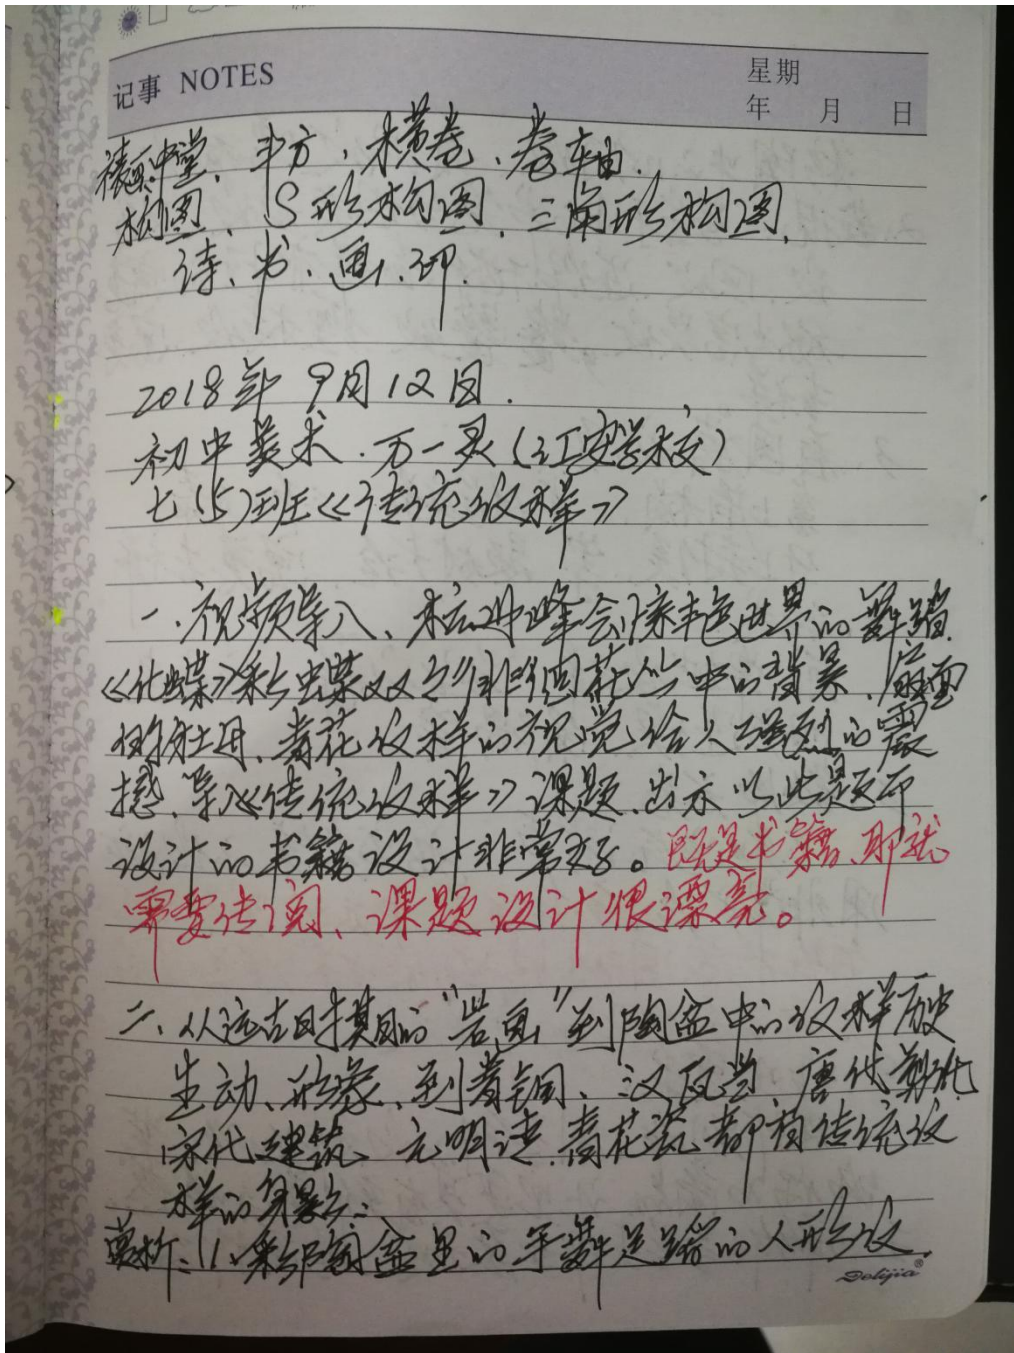 记事 NOTES
星期
年 月 日
裱画中堂、斗方、横卷、卷轴.
构图、S形构图、三角形构图、
诗、书、画、印.
2018年 9月12日.
初中美术.万一灵(江安学校)
七(5)班《传统纹样》
一、视频导入、杭州峰会 世界的舞蹈
《化蝶》彩蝶双双 花丛中的背景、后面
牡丹、青花纹样的视觉给人强烈的震
撼、导入《传统纹样》课题、出示以此题而
设计的书籍设计非常好。既是书籍、那就
需要传阅、课题设计很漂亮。
二、从远古时期的"岩画"到陶盆中的纹样历史
生动、形象、到青铜、汉瓦当、唐代
宋代建筑、元明清、青花瓷都有传统纹
样的身影:
赏析:1、彩陶盆里的手舞足蹈的人形纹、
Dolijia®